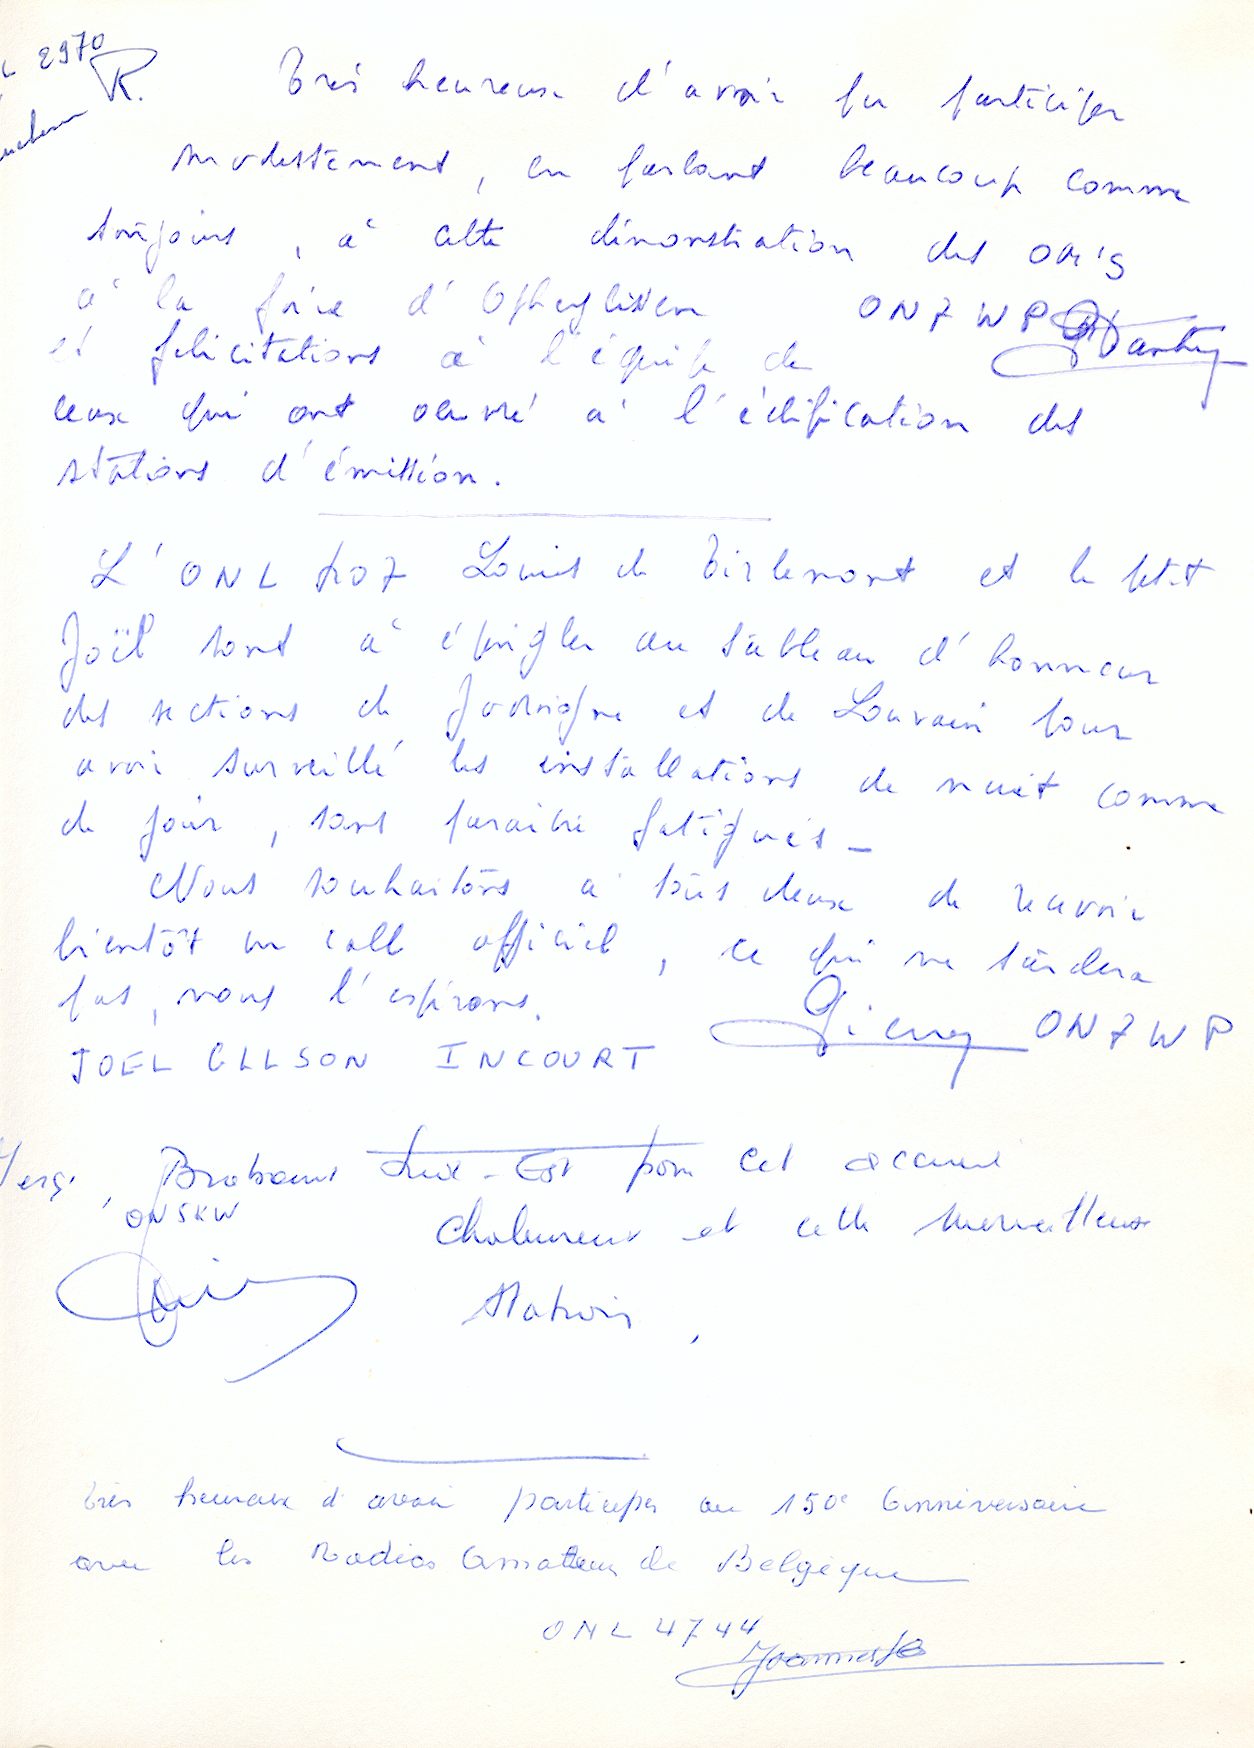 2970
R.
Très heureux d'avoir pu participer
modestement, en parlant beaucoup comme
toujours, à cette démonstration des OM's
à la foire d'Opheylissem ON7WP
et félicitations à l'équipe de
ceux qui ont oeuvré à l'édification des
stations d'émission.
L'ONL Louis de Tirlemont et le petit
Joël sont à épingler au tableau d'honneur
des sections de Jodoigne et de Louvain pour
avoir surveillé les installations de nuit comme
de jour, sans paraître fatigués_
Nous souhaitons à tous deux de recevoir
bientôt un call officiel, ce qui ne tardera
pas, nous l'espérons.
Pierrey ON7WP
JOEL INCOURT
Brabant Sud-Est pour cet accueil
ON5KW
chaleureux et cette merveilleuse
Station,
Très heureux d'avoir participer au 150e Anniversaire
avec les Radios Amateur de Belgique
ONL 4744